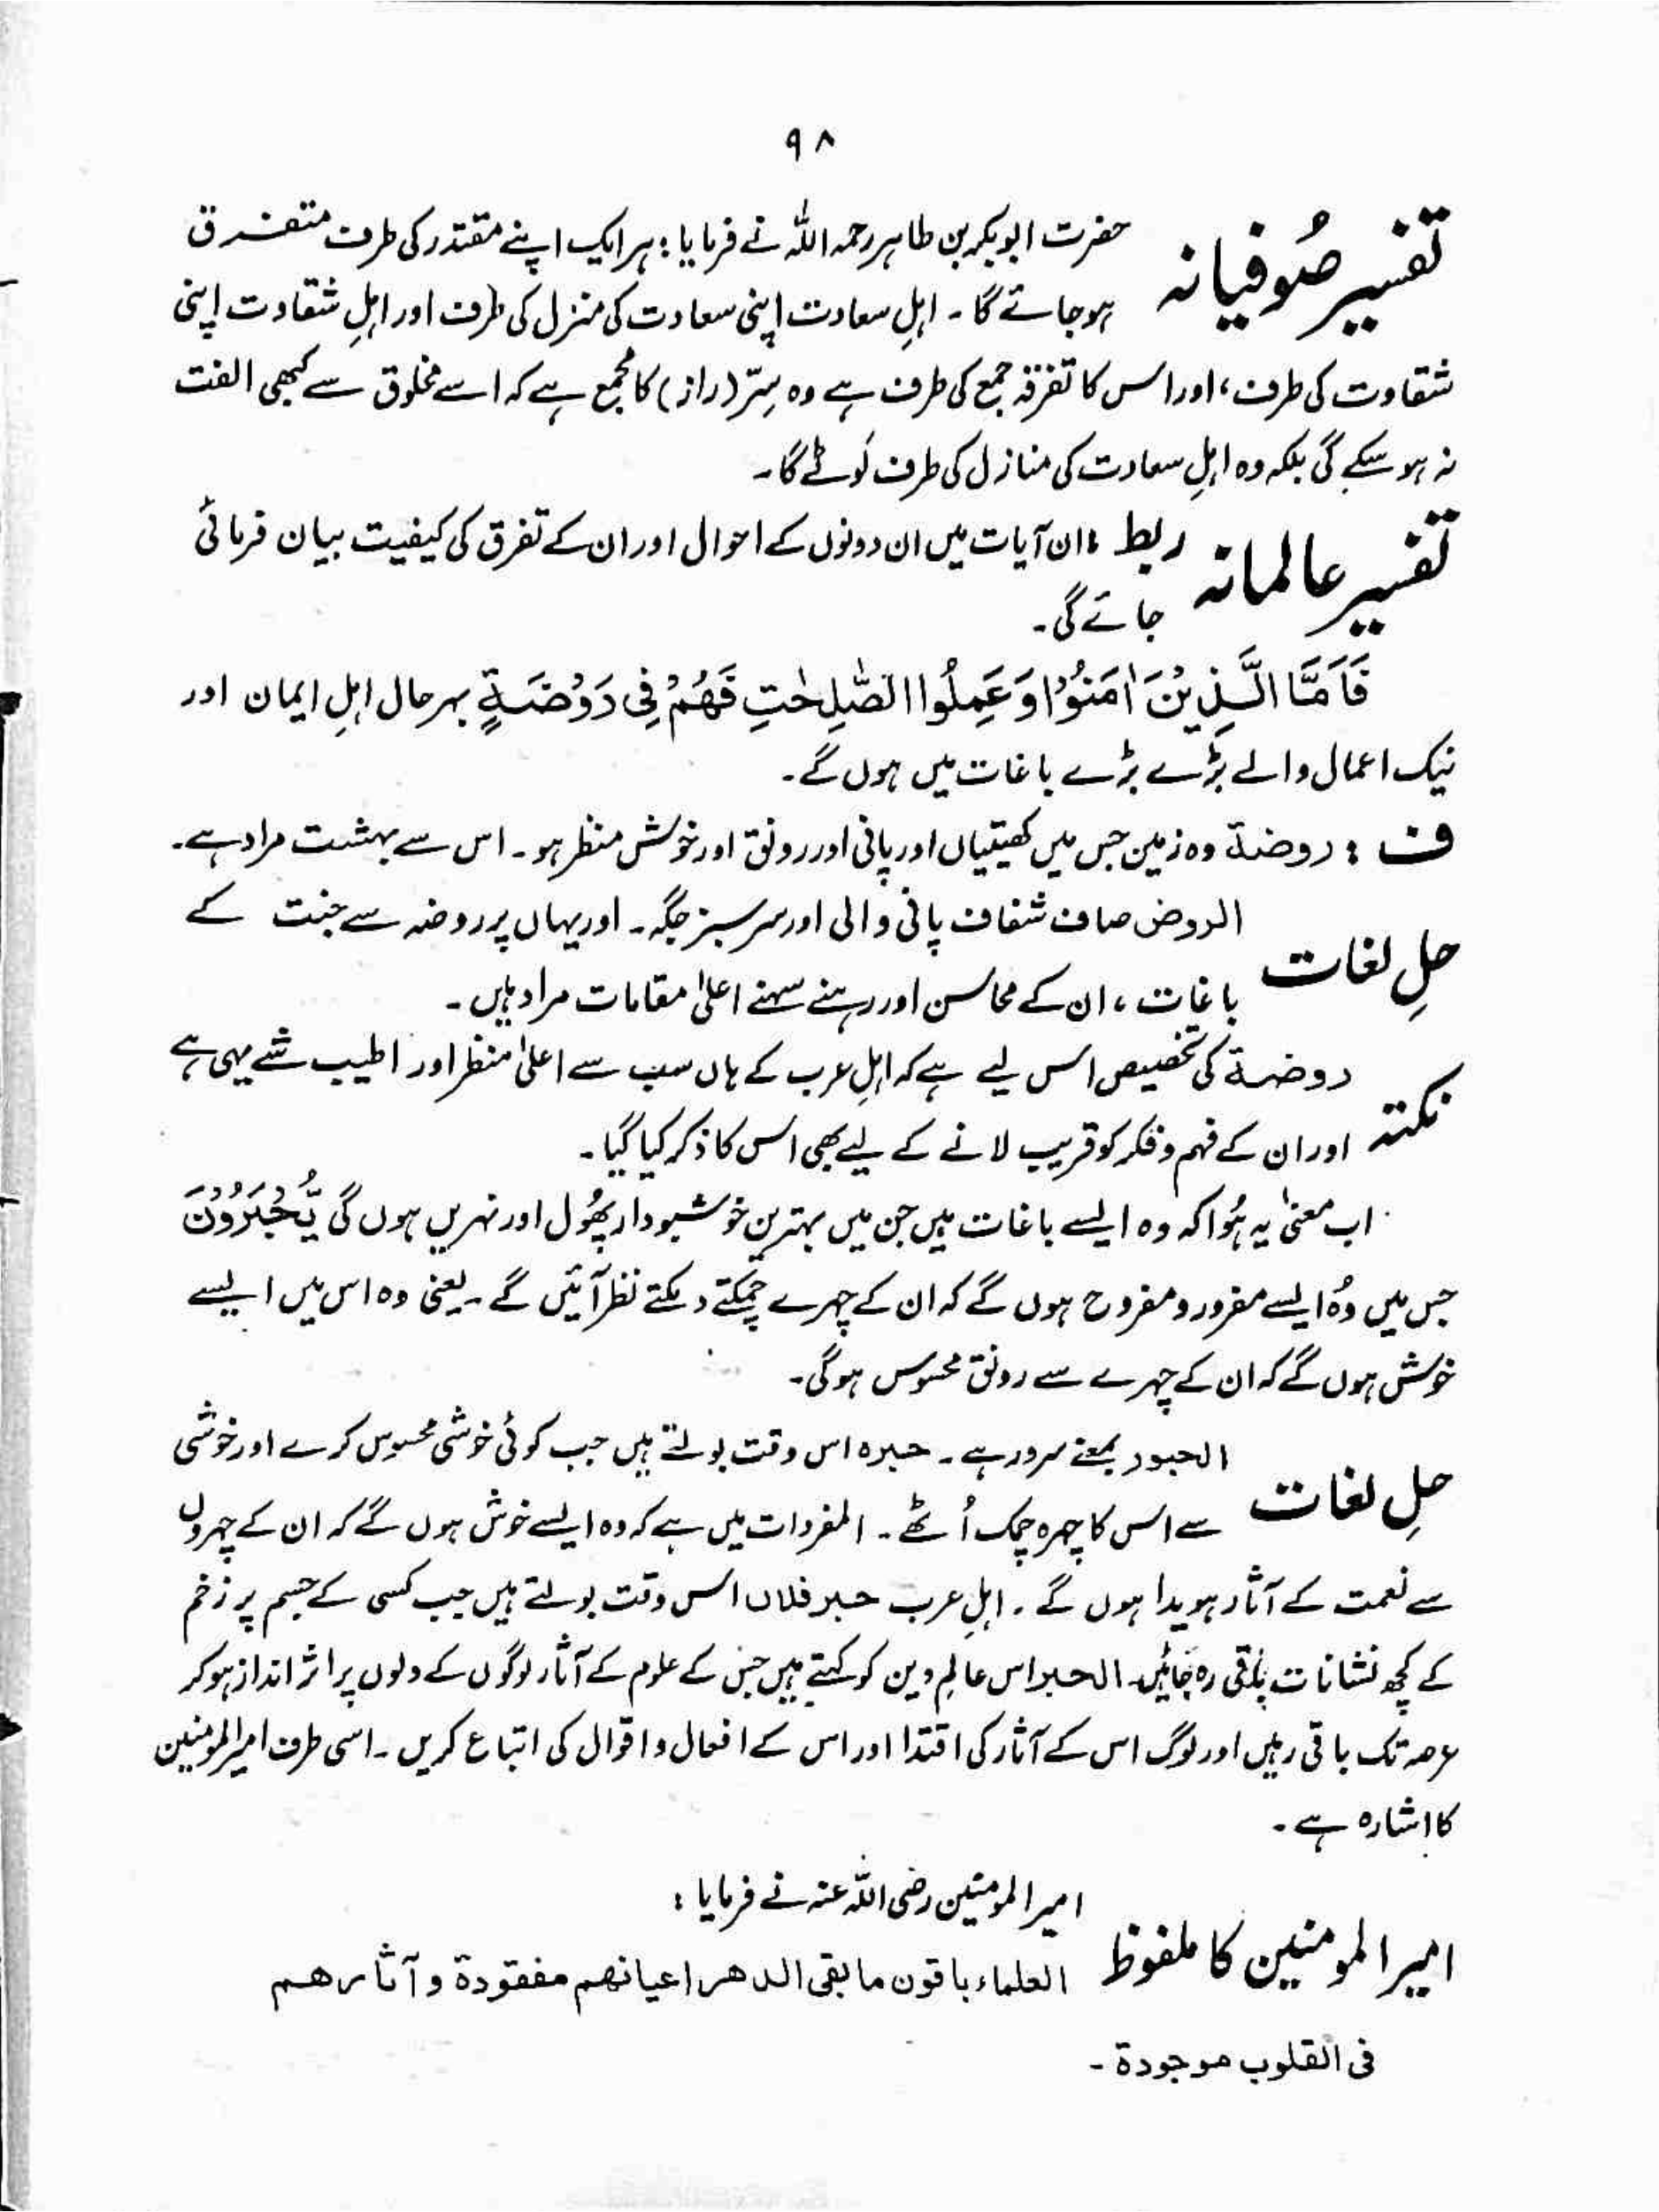 ۹۸
تفسیر صُوفیانہ
حضرت ابوبکر بن طاہر رحمہ اللہ نے فرمایا : ہر ایک اپنے مقتدر کی طرف متفرق
ہو جائے گا ۔ اہلِ سعادت اپنی سعادت کی منزل کی طرف اور اہلِ شقاوت اپنی
شقاوت کی طرف ، اور اس کا تفرقہ جمع کی طرف ہے وہ سِرّ (راز) کا مجمع ہے کہ اسے مخلوق سے کبھی الفت
نہ ہو سکے گی بلکہ وہ اہلِ سعادت کی منازل کی طرف لَوٹے گا ۔
تفسیر عالمانہ
ربط : ان آیات میں ان دونوں کے احوال اور ان کے تفرق کی کیفیت بیان فرمائی
جائے گی ۔
فَاَمَّا الَّذِيْنَ اٰمَنُوْا وَعَمِلُوا الصّٰلِحٰتِ فَهُمْ فِى رَوْضَةٍ بہرحال اہلِ ایمان اور
نیک اعمال والے بڑے بڑے باغات میں ہوں گے ۔
ف : روضة وہ زمین جس میں کھیتیاں اور پانی اور رونق اور خوش منظر ہو ۔ اس سے بہشت مراد ہے ۔
حلِ لغات
الروض صاف شفاف پانی والی اور سرسبز جگہ ۔ اور یہاں پر روضہ سے جنت کے
باغات ، ان کے محاسن اور رہنے سہنے اعلیٰ مقامات مراد ہیں ۔
نکتہ
روضة کی تخصیص اس لیے ہے کہ اہلِ عرب کے ہاں سب سے اعلیٰ منظر اور اطیب شے یہی ہے
اور ان کے فہم و فکر کو قریب لانے کے لیے بھی اس کا ذکر کیا گیا ۔
اب معنیٰ یہ ہُوا کہ وہ ایسے باغات ہیں جن میں بہترین خوشبودار پھُول اور نہریں ہوں گی يُّحْبَرُوْنَ
جس میں وُہ ایسے مفرور و مفروح ہوں گے کہ ان کے چہرے چمکتے دمکتے نظر آئیں گے ۔ یعنی وہ اس میں ایسے
خوش ہوں گے کہ ان کے چہرے سے رونق محسوس ہوگی ۔
حلِ لغات
الحبور بمعنے سرور ہے ۔ حبرہ اس وقت بولتے ہیں جب کوئی خوشی محسوس کرے اور خوشی
سے اس کا چہرہ چمک اُٹھے ۔ المفردات میں ہے کہ وہ ایسے خوش ہوں گے کہ ان کے چہروں
سے نعمت کے آثار ہویدا ہوں گے ۔ اہلِ عرب حبر فلان اس وقت بولتے ہیں جب کسی کے جسم پر زخم
کے کچھ نشانات باقی رہ جائیں ۔ الحبر اس عالمِ دین کو کہتے ہیں جس کے علوم کے آثار لوگوں کے دلوں پر اثر انداز ہو کر
عرصہ تک باقی رہیں اور لوگ اس کے آثار کی اقتدا اور اس کے افعال و اقوال کی اتباع کریں ۔ اسی طرف امیر المومنین
کا اشارہ ہے ۔
امیر المومنین کا ملفوظ
امیر المومنین رضی اللہ عنہ نے فرمایا :
العلماء باقون ما بقی الدهر اعیانهم مفقودة و آثارهم
فی القلوب موجودة ۔